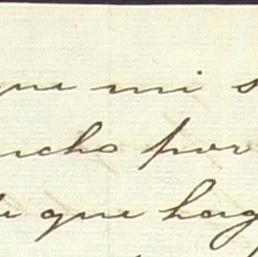 que mi s
ucho por
de que hag